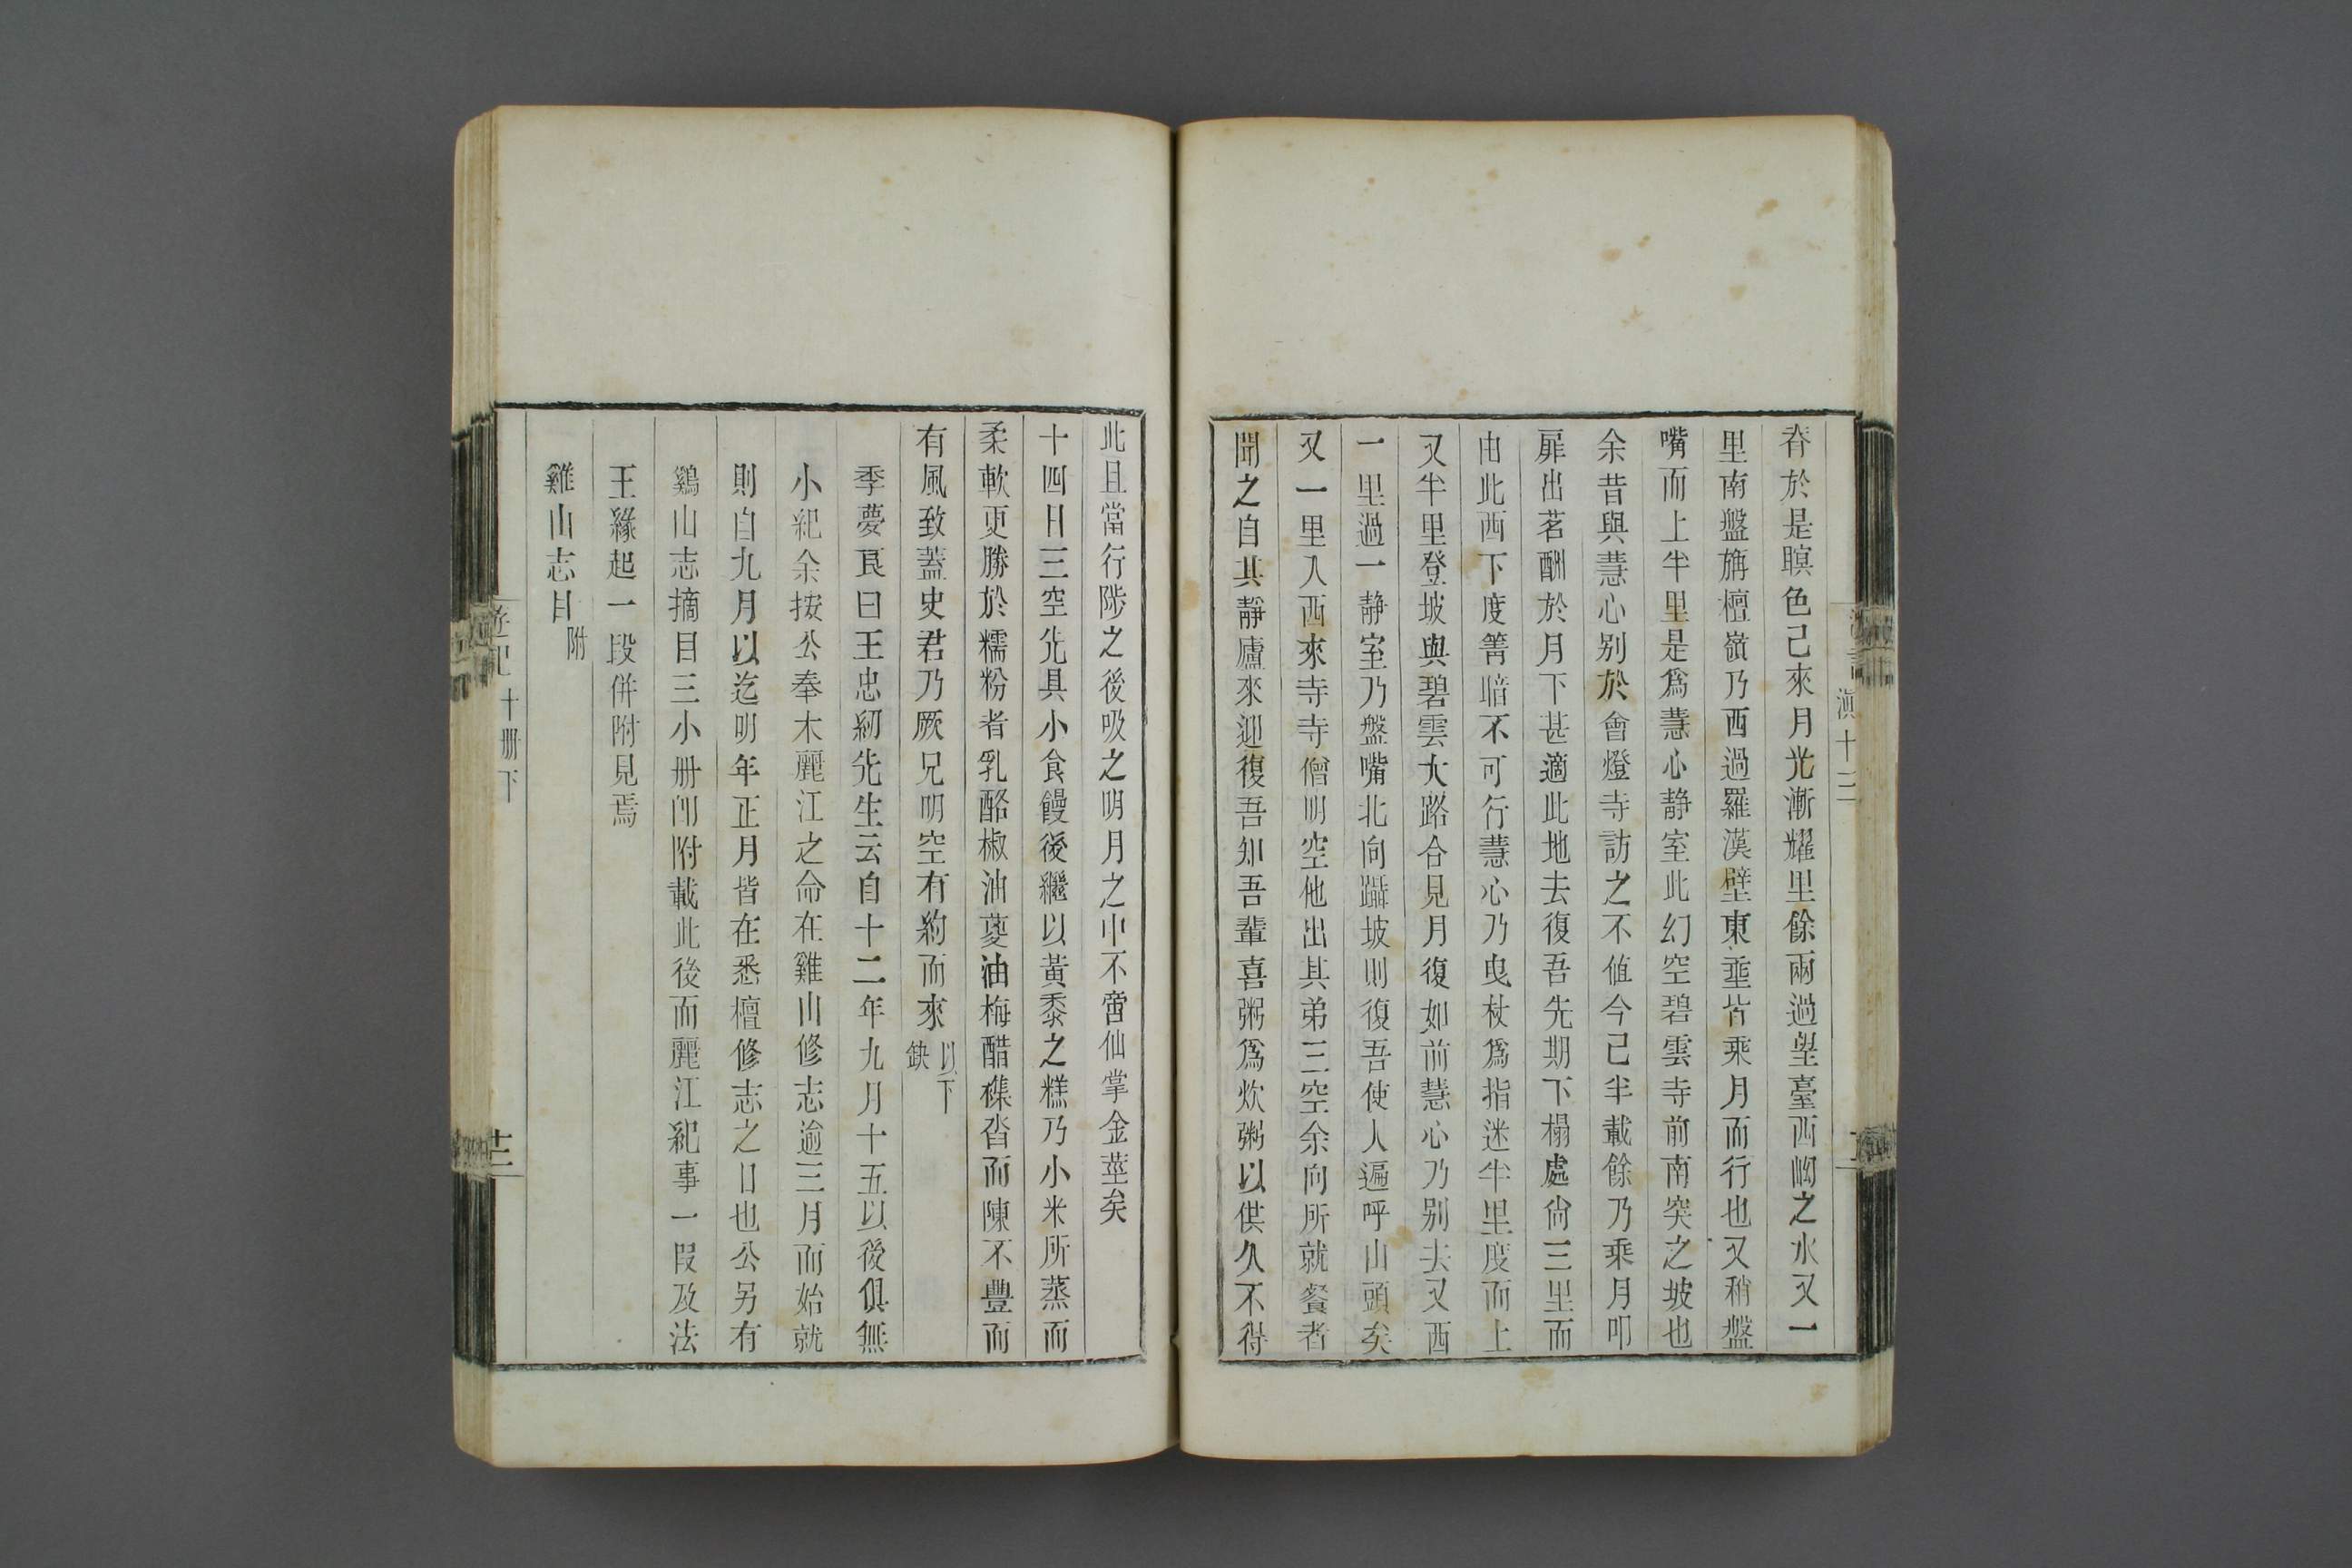 脊於是暝色已來月光漸耀里餘兩過望臺西㘭之水又一
里南盤旃檀嶺乃西過羅漢壁東垂皆乘月而行也又稍盤
嘴而上半里是爲慧心静室此幻空碧雲寺前南突之坡也
余昔與慧心别於會燈寺訪之不值今已半載餘乃乘月叩
扉出茗酬於月下甚適此地去復吾先期下榻處尙三里而
由此西下度箐暗不可行慧心乃曳杖爲指迷半里度而上
又半里登坡與碧雲大路合見月復如前慧心乃别去又西
一里過一静室乃盤嘴北向躡坡則復吾使人遍呼山頭矣
又一里入西來寺寺僧明空他出其弟三空余向所就餐者
聞之自其靜廬來迎復吾知吾輩喜粥爲炊粥以供久不得
此且當行陟之後吸之明月之中不啻仙掌金莖矣
十四日三空先具小食饅後繼以黃黍之糕乃小米所蒸而
柔軟更勝於糯粉者乳酪椒油葼油梅醋襍沓而陳不豐而
有風致蓋史君乃厥兄明空有約而來以下缺
季夢良曰王忠紉先生云自十二年九月十五以後俱無
小紀余按公奉木麗江之命在雞山修志逾三月而始就
則自九月以迄明年正月皆在悉檀修志之日也公另有
鷄山志摘目三小册卽附載此後而麗江紀事一段及法
王緣起一段併附見焉
雞山志目附
遊記 十册下